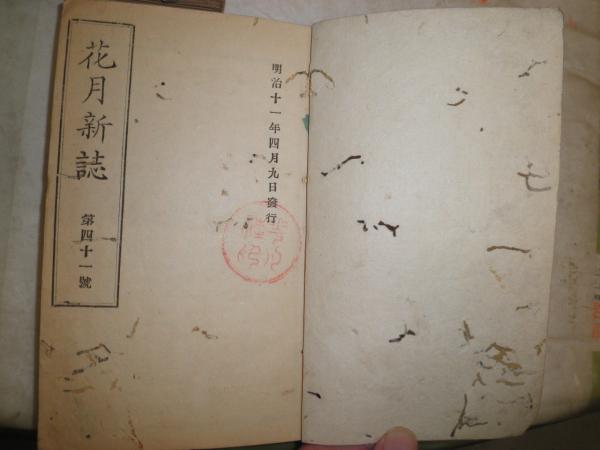 明治十一年四月九日發行
花月新誌
第四十一號